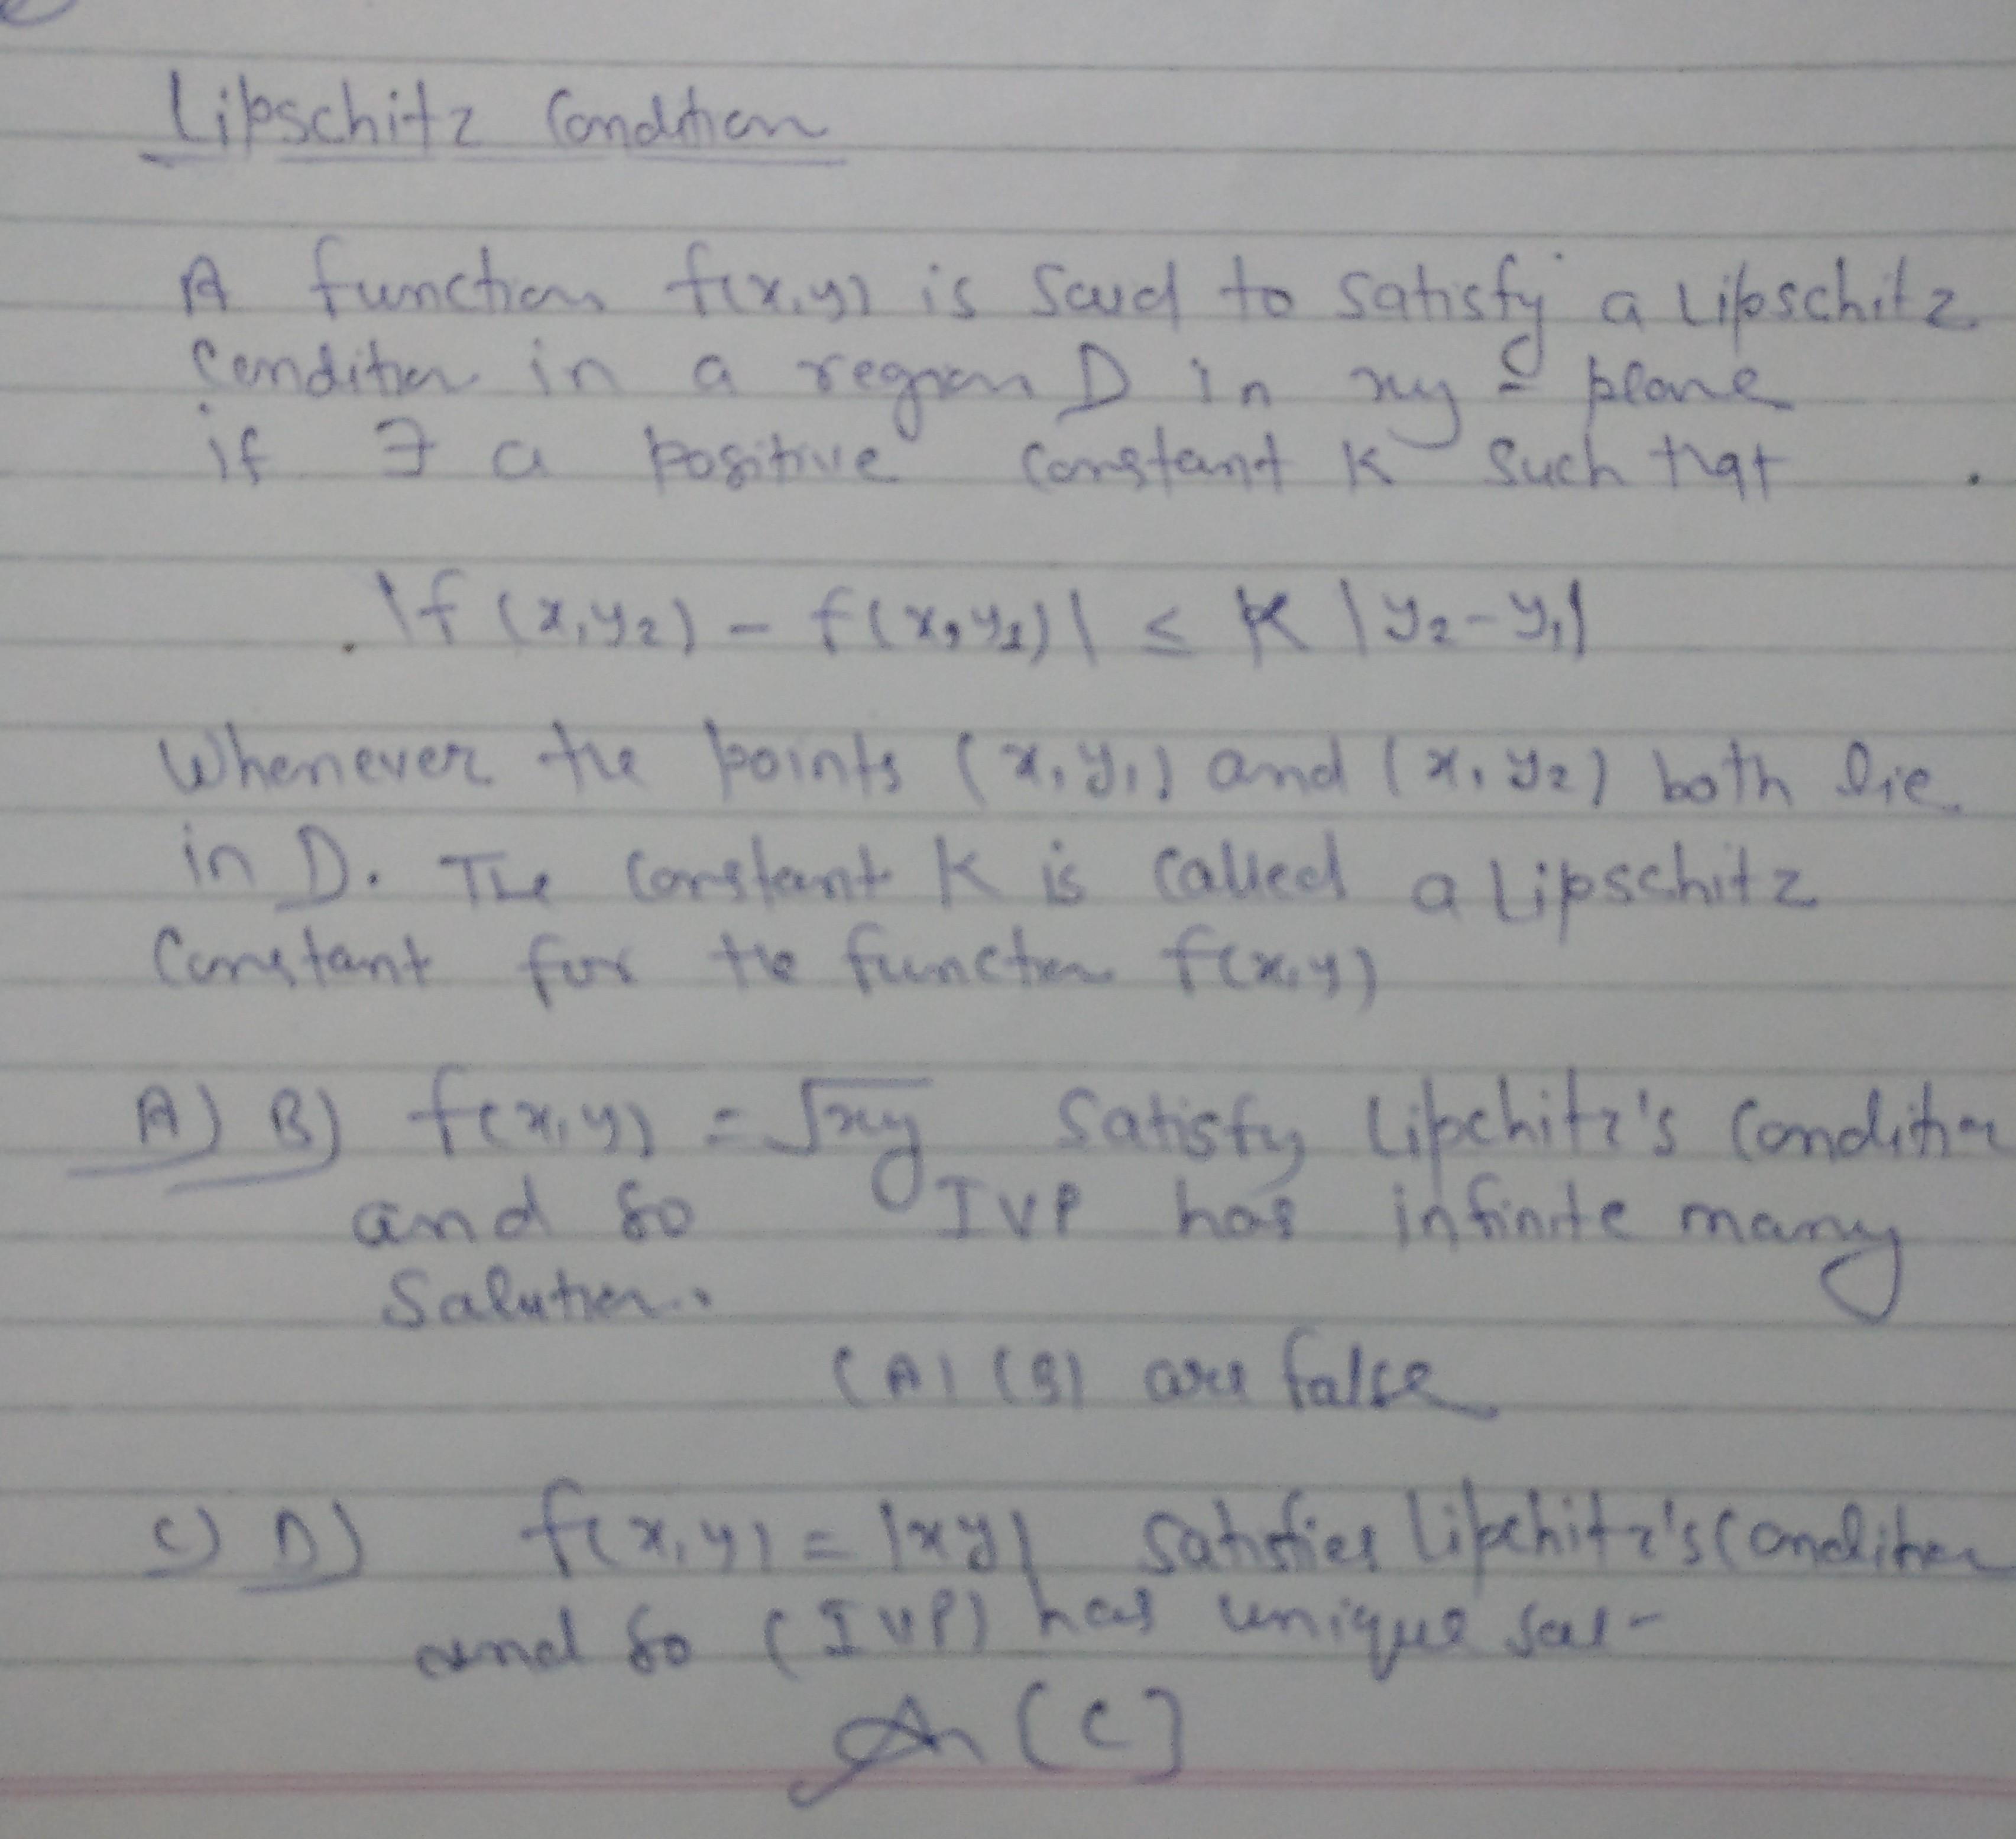 Lipschitz Condition
A function f(x,y) is said to satisfy a Lipschitz
Condition in a region D in xy - plane
if ∃ a positive constant K such that
|f(x,y₂) - f(x,y₁)| ≤ K |y₂-y₁|
Whenever the points (x,y₁) and (x,y₂) both lie
in D. The constant K is called a Lipschitz
Constant for the function f(x,y)
A) B) f(x,y) = √xy Satisfy Lipchitz's Condition
and so IVP has infinite many
Solution.
(A) (B) are false
C) D) f(x,y) = |xy| Satisfies Lipchitz's Condition
and so (IVP) has unique sol-
An (C)